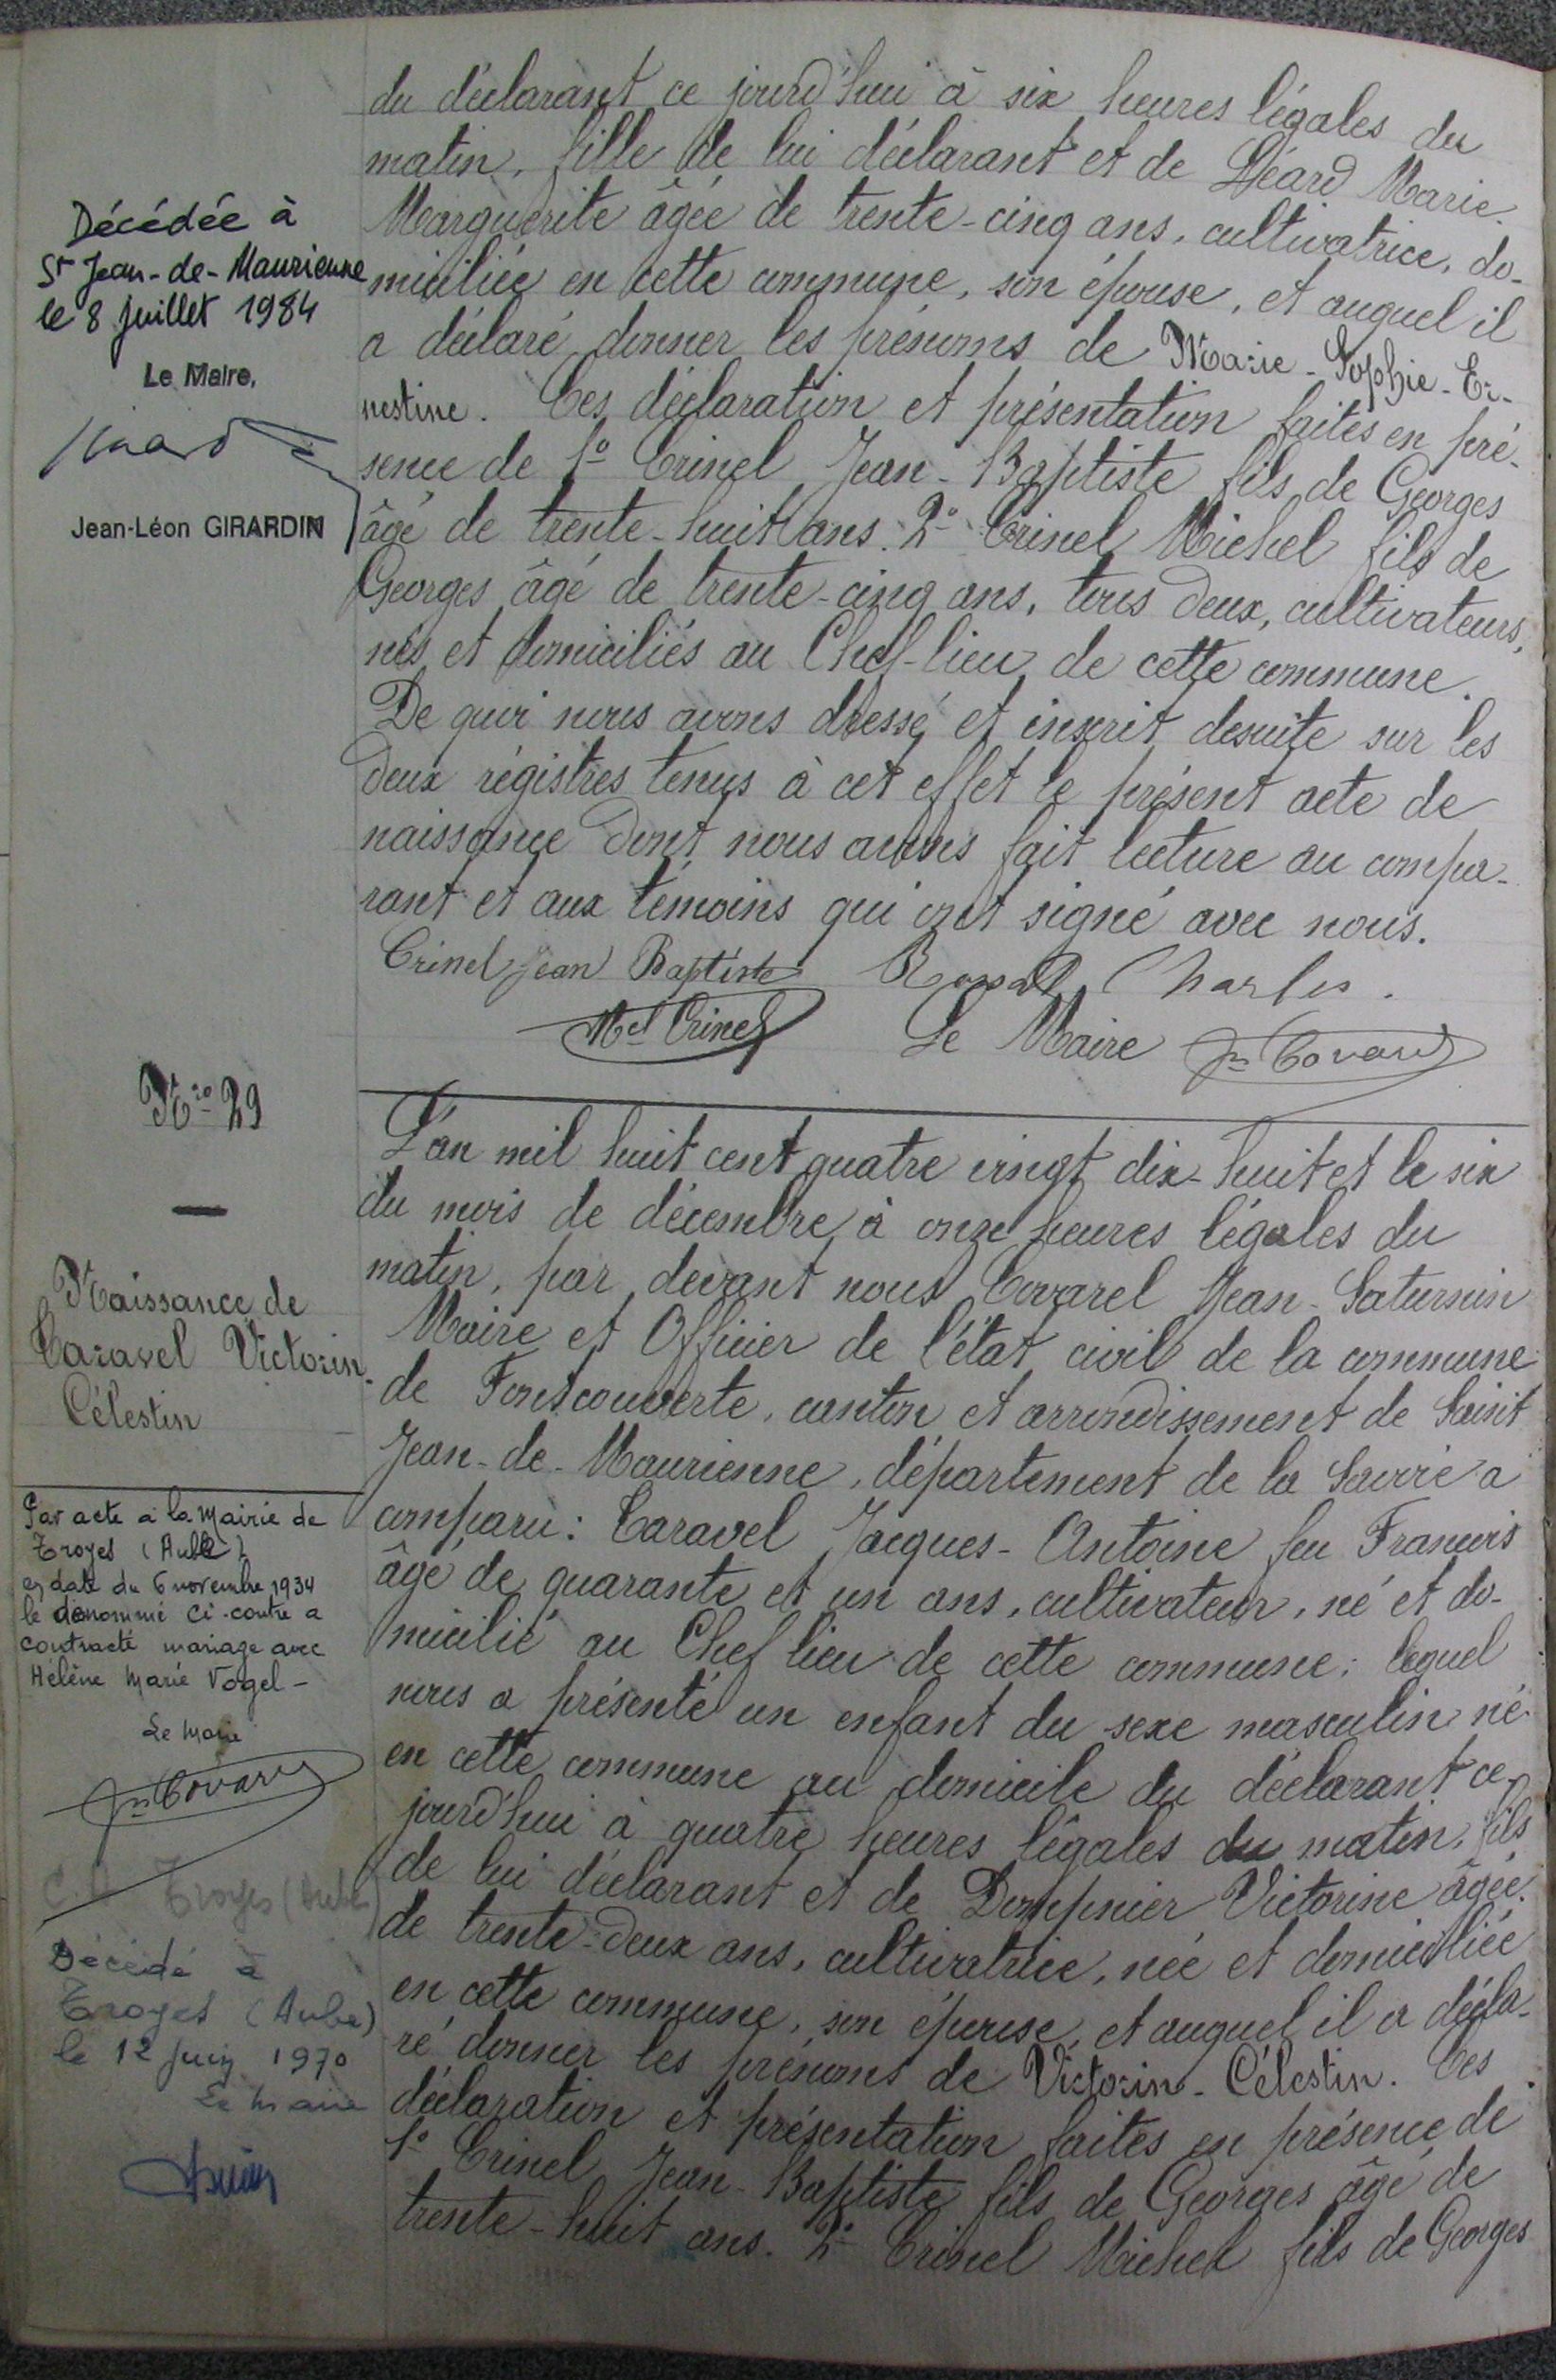 du déclarant ce jourd'hui à six heures légales du
matin, fille de lui déclarant et de Déard Marie
Marguerite âgée de trente-cinq ans, cultivatrice, do-
miciliée en cette commune, son épouse, et auquel il
a déclaré donner les prénoms de Marie-Sophie-Er-
nestine. Ces déclaration et présentation faites en pré-
sence de 1° Crinel Jean-Baptiste fils de Georges
âgé de trente-huit ans. 2° Crinel Michel fils de
Georges âgé de trente-cinq ans, tous deux, cultivateurs,
nés et domiciliés au Chef-lieu de cette commune.
De quoi nous avons dressé et inscrit desuite sur les
deux régistres tenus à cet effet le présent acte de
naissance dont nous avons fait lecture au compa-
rant et aux témoins qui ont signé avec nous.
Crinel Jean Baptiste Charles.
Mel Crinel Le Maire Jn Covarel
Décédée à
St Jean-de-Maurienne
le 8 juillet 1984
Le Maire,
Jean-Léon GIRARDIN
Nro 29
Naissance de
Caravel Victorin
Célestin
L'an mil huit cent quatre vingt dix-huit et le six
du mois de décembre à onze heures légales du
matin, par devant nous Covarel Jean-Saturnin
Maire et Officier de l'état civil de la commune
de Fontcouverte, canton et arrondissement de Saint
Jean-de-Maurienne, département de la Savoie a
comparu: Caravel Jacques-Antoine feu François
âgé de quarante et un ans, cultivateur, né et do-
micilié au Chef lieu de cette commune; lequel
nous a présenté un enfant du sexe masculin né
en cette commune au domicile du déclarant ce
jourd'hui à quatre heures légales du matin, fils
de lui déclarant et de Dompnier Victorine âgée
de trente-deux ans, cultivatrice, née et domiciliée
en cette commune, son épouse, et auquel il a décla-
ré donner les prénoms de Victorin-Célestin. Ces
déclaration et présentation faites en présence de
1° Crinel Jean-Baptiste fils de Georges âgé de
trente-huit ans. 2° Crinel Michel fils de Georges
Par acte à la Mairie de
Troyes (Aube)
en date du 6 novembre 1934
le dénommé ci-contre a
contracté mariage avec
Hélène Marie Vogel-
Le Maire
Jn Covarel
Troyes (Aube)
Décédé à
Troyes (Aube)
le 12 juin 1970
Le Maire